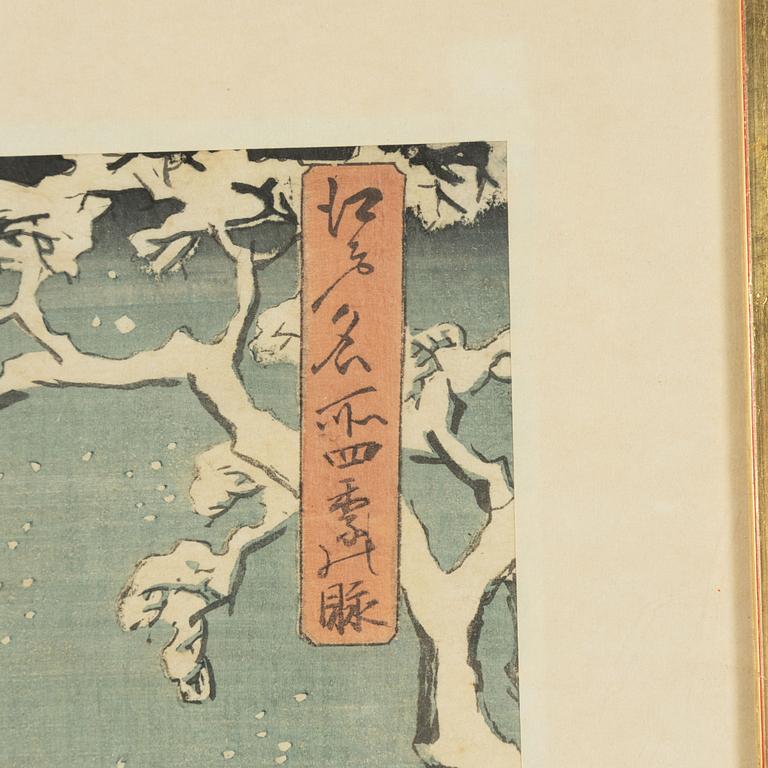 江戸名所四季の眺